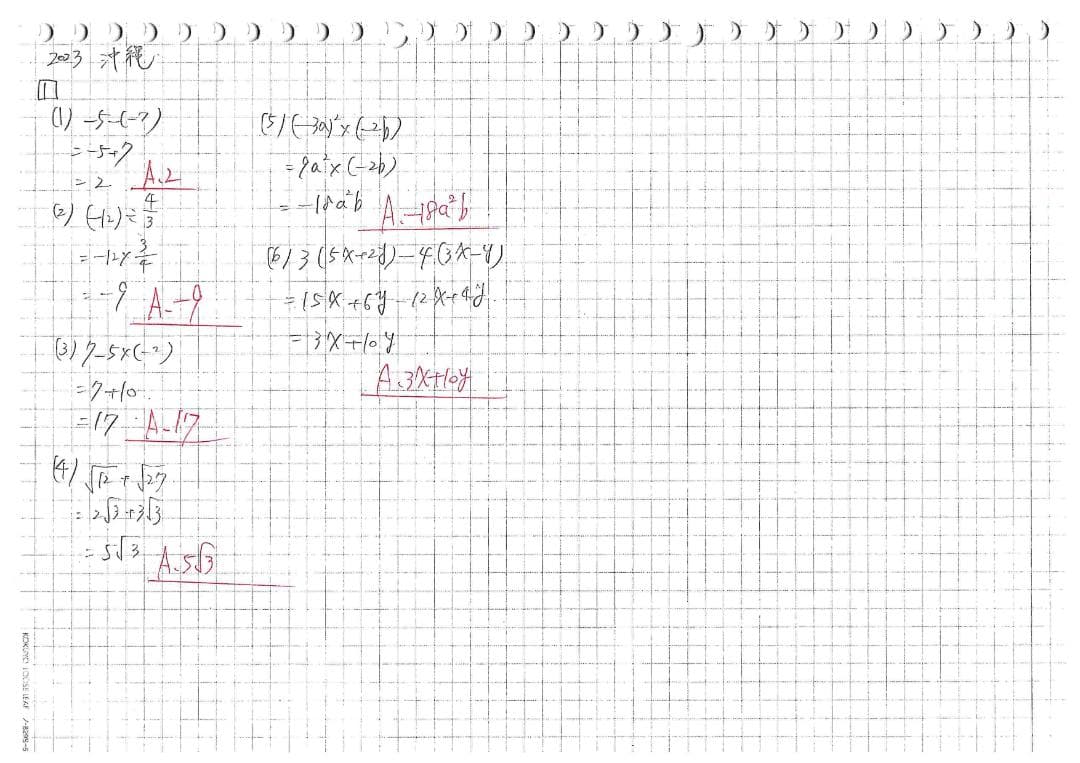 2023 沖縄
1
(1) -5-(-7)
= -5+7
= 2 A.2
(2) (-12)÷4/3
= -12×3/4
= -9 A.-9
(3) 7-5×(-2)
= 7+10
= 17 A.17
(4) √12+√27
= 2√3+3√3
= 5√3 A.5√3
(5) (-3a)²×(-2b)
= 9a²×(-2b)
= -18a²b A.-18a²b
(6) 3(5x+2y)-4(3x-y)
= 15x+6y-12x+4y
= 3x+10y
A.3x+10y
KOKUYO LOOSE-LEAF